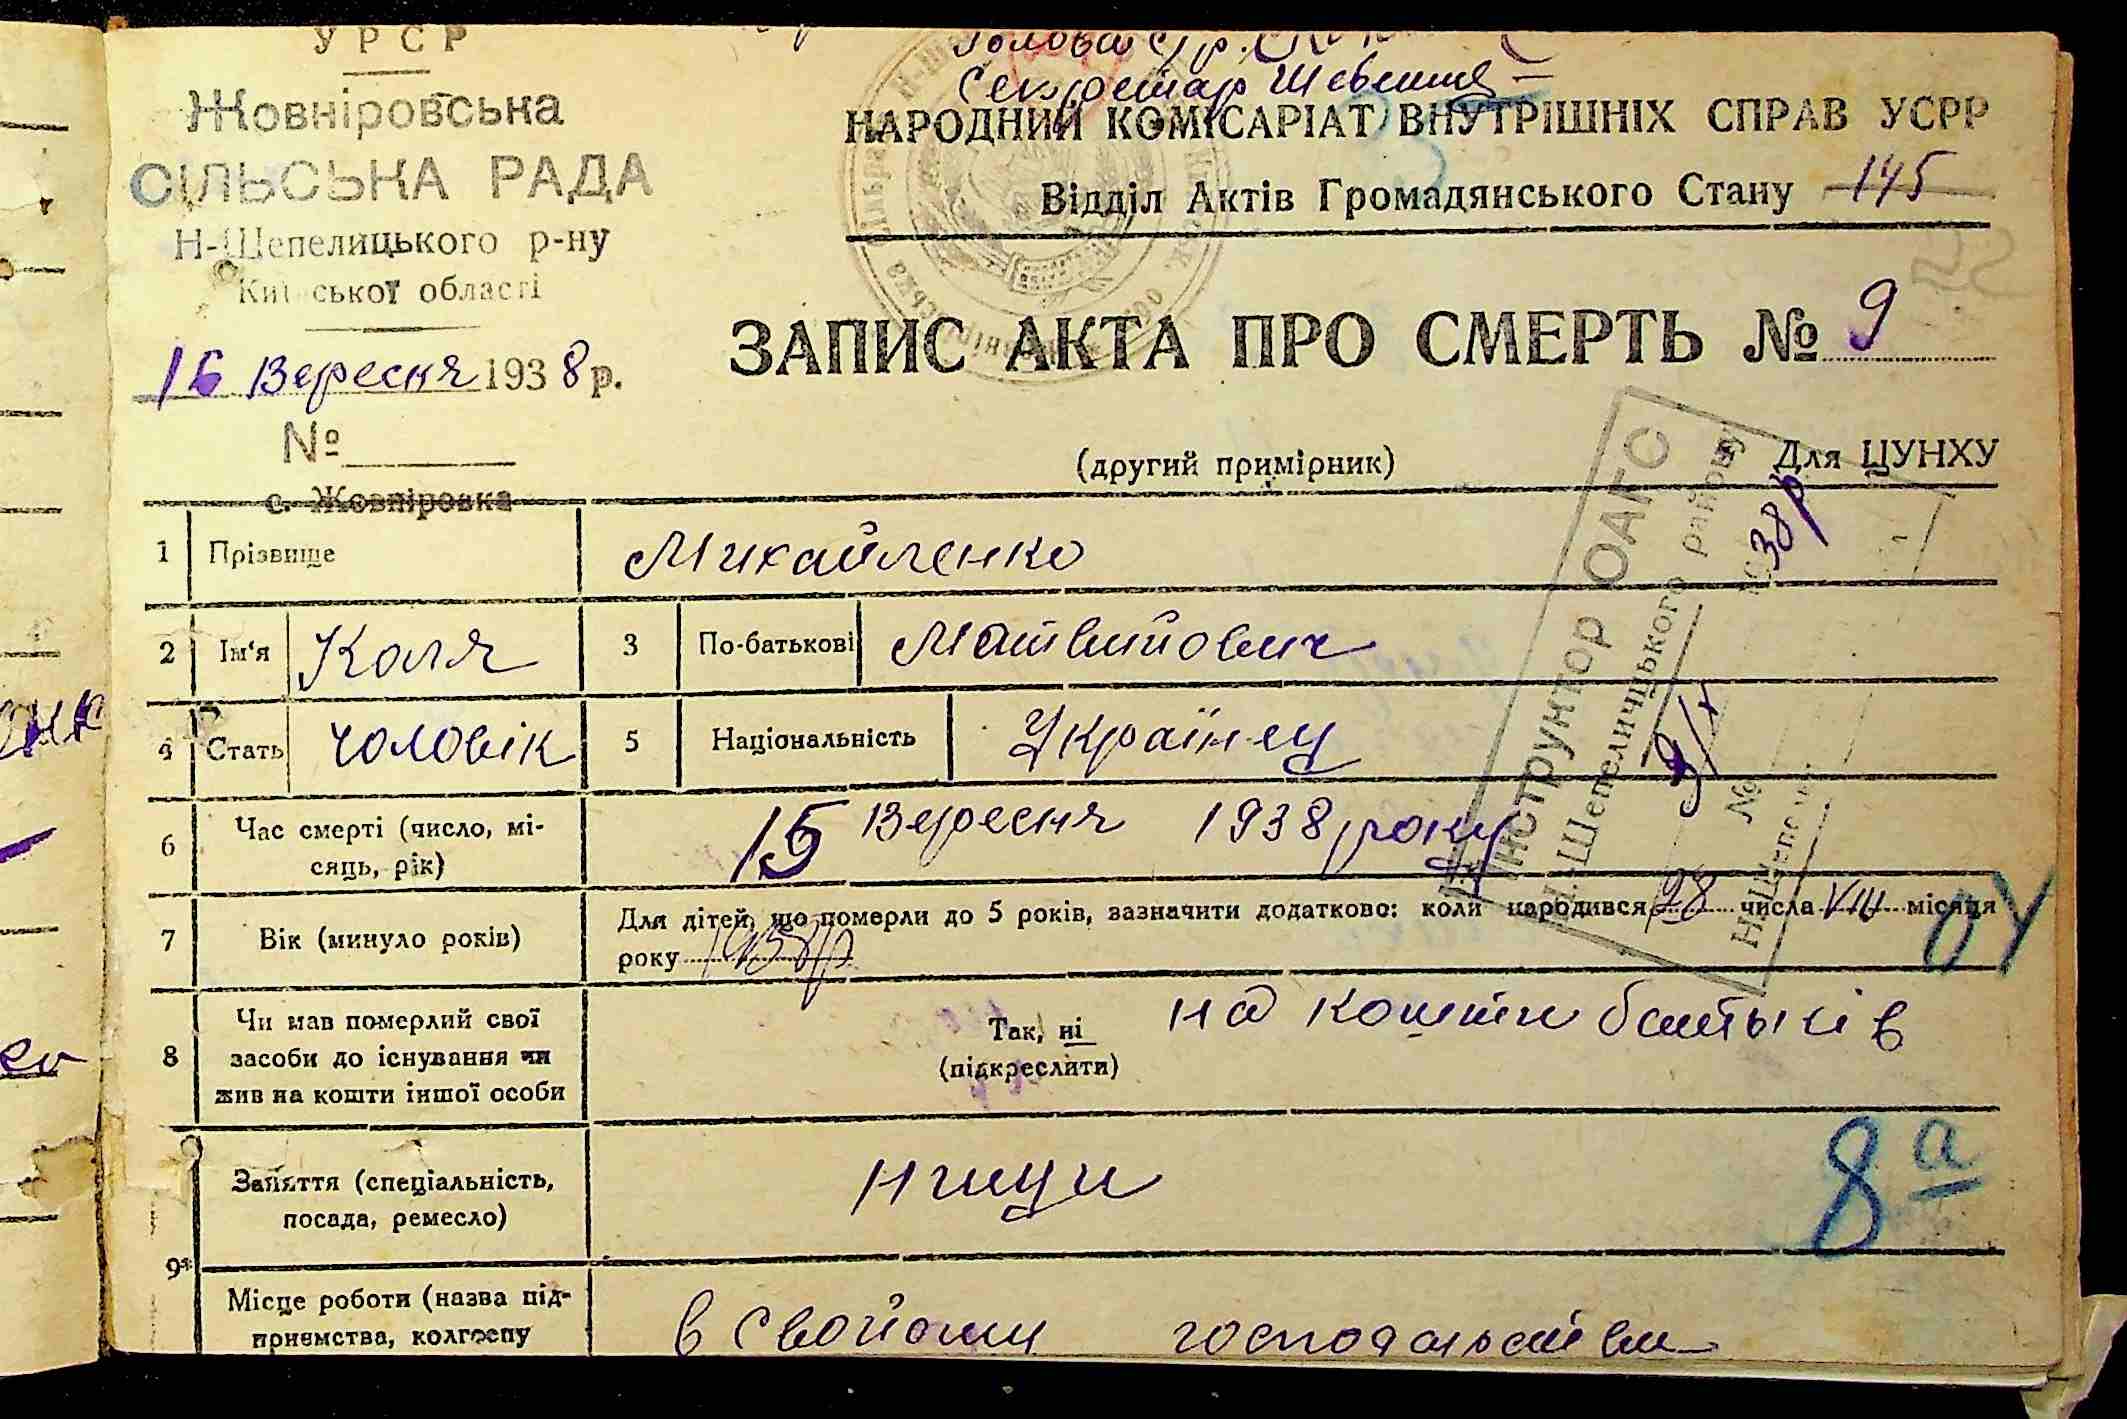 УРСР
Жовніровська
СІЛЬСЬКА РАДА
Н-Шепелицького р-ну
Київської області
16 Вересня 1938 р.
№
с. Жовніровка
Голова с/р.
Секретар
НАРОДНИЙ КОМІСАРІАТ ВНУТРІШНІХ СПРАВ УСРР
Відділ Актів Громадянського Стану 145
ЗАПИС АКТА ПРО СМЕРТЬ № 9
(другий примірник)
Для ЦУНХУ
Інструктор ОАГС
Н.-Шепеличцького району
38р
№
1 Прізвище Михайленко
2 Ім'я Коля 3 По-батькові Матвийович
4 Стать чоловік 5 Національність Українец
6 Час смерті (число, мі-
сяць, рік) 15 Вересня 1938 року
7 Вік (минуло років) Для дітей, що померли до 5 років, зазначити додатково: коли народився 28 числа VIII місяця
року 1938р.
8 Чи мав померлий свої
засоби до існування чи
жив на кошти іншої особи
Так, ні
(підкреслити)
на кошти батьків
9 Заняття (спеціальність,
посада, ремесло)
8а
Місце роботи (назва під-
приємства, колгоспу
в свойому господарстви